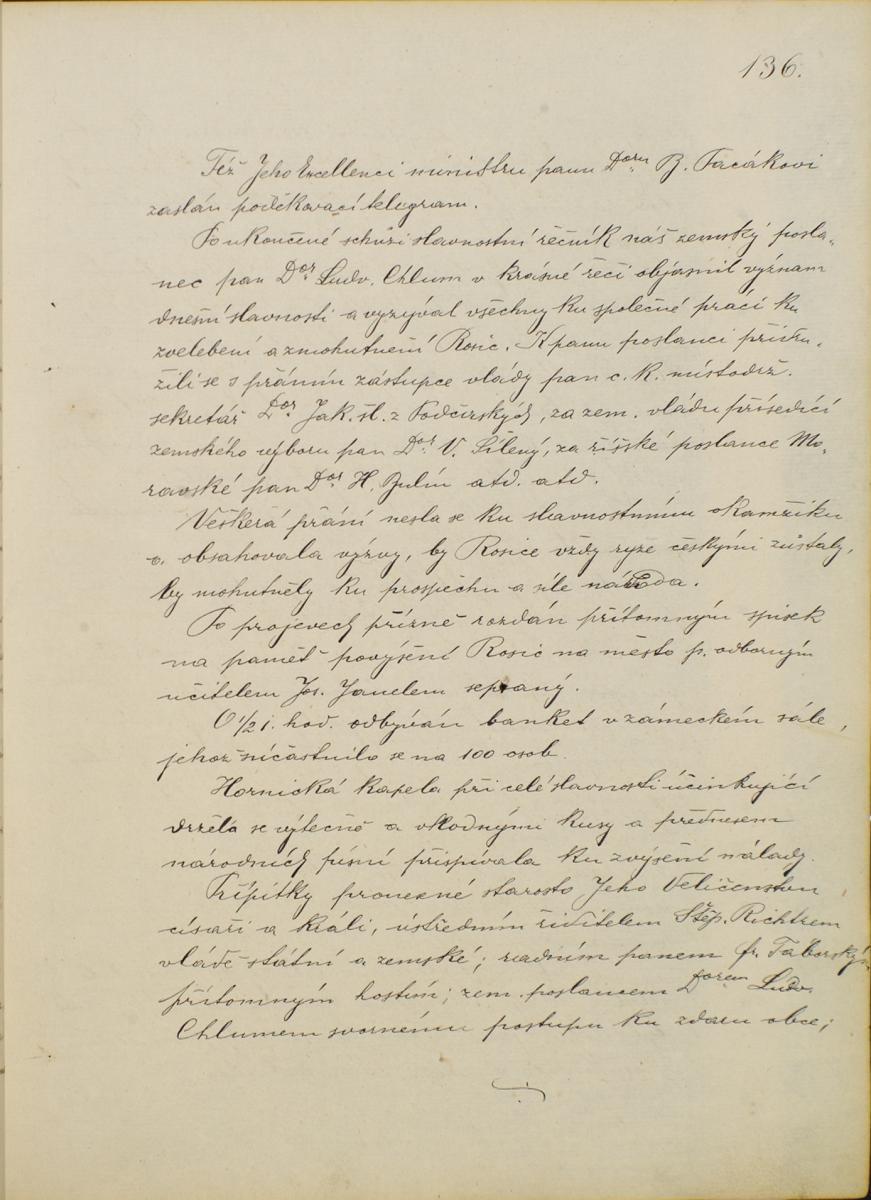 136.
Též Jeho Excellenci ministru panu Doru B. Pacákovi
zaslán poděkovací telegram.
Po ukončené schůzi slavnostní řečník náš zemský posla-
nec pan Dor. Ludv. Chlum v krásné řeči objasnil význam
dnešní slavnosti a vyzýval všechny ku společné práci ku
zvelebení a zmohutnění Rosic. K panu poslanci přidru-
žili se s přáním zástupce vlády pan c. k. místodrž.
sekretář Dor. Jak. šl. z Podčirských, za zem. vládu přísedící
zemského výboru pan Dor. V. Šílený, za říšské poslance Mo-
ravské pan Dor. H. Bulín atd. atd.
Veškerá přání nesla se ku slavnostnímu okamžiku
a obsahovala výzvy, by Rosice vždy ryze českými zůstaly,
by mohutněly ku prospěchu a síle národa.
Po projevech přízně rozdán přítomným spisek
na paměť povýšení Rosic na město p. odborným
učitelem Jos. Janelem sepsaný.
O 1/2 1. hod. odbýván banket v zámeckém sále,
jehož súčastnilo se na 100 osob.
Hornická kapela při celé slavnosti účinkující
držela se výtečně a vhodnými kusy a přednesem
národních písní přispívala ku zvýšení nálady.
Přípitky pronesné starostou Jeho Veličenstvu
císaři a králi, ústředním ředitelem Štěp. Richtrem
vládě státní a zemské; radním panem fr. Táborským
přítomným hostům; zem. poslancem Dorem Ludv.
Chlumem svornému postupu ku zdaru obce;